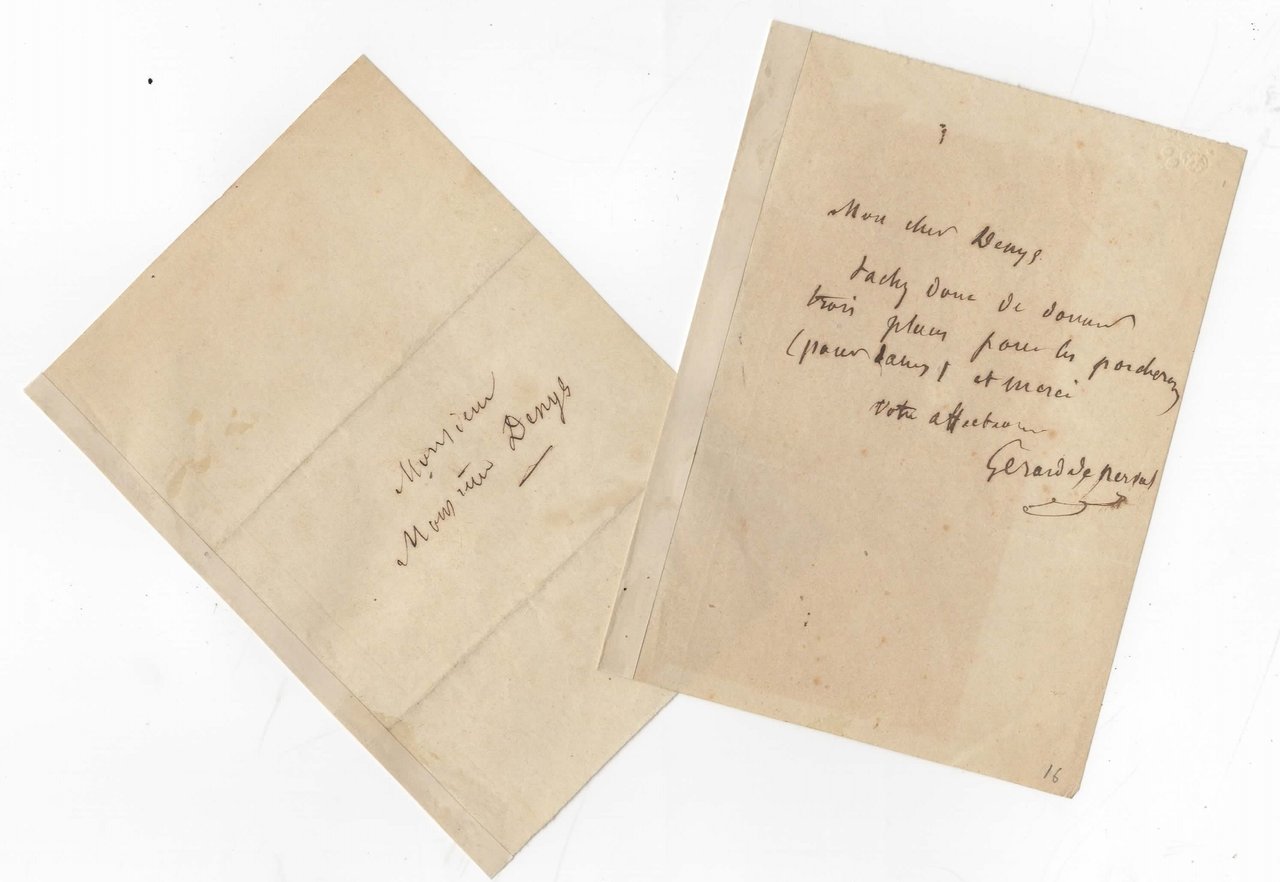 Monsieur
Monsieur Denys
Mon cher Denys
tachez donc de donner
trois places pour les porcherons
(pour dames) et merci
votre affectionné
Gérard de Nerval
16